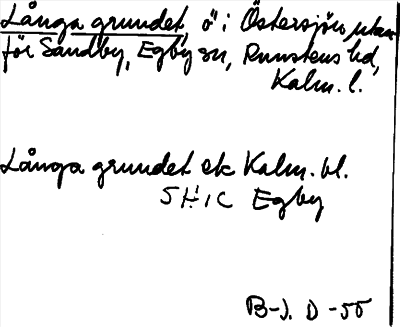 Långa grundet, ö i Östersjön, utan-
för Sandby, Egby sn, Runstens hd,
Kalm. l.
Långa grundet ek Kalm. bl.
5H1C Egby
B-J. D -55